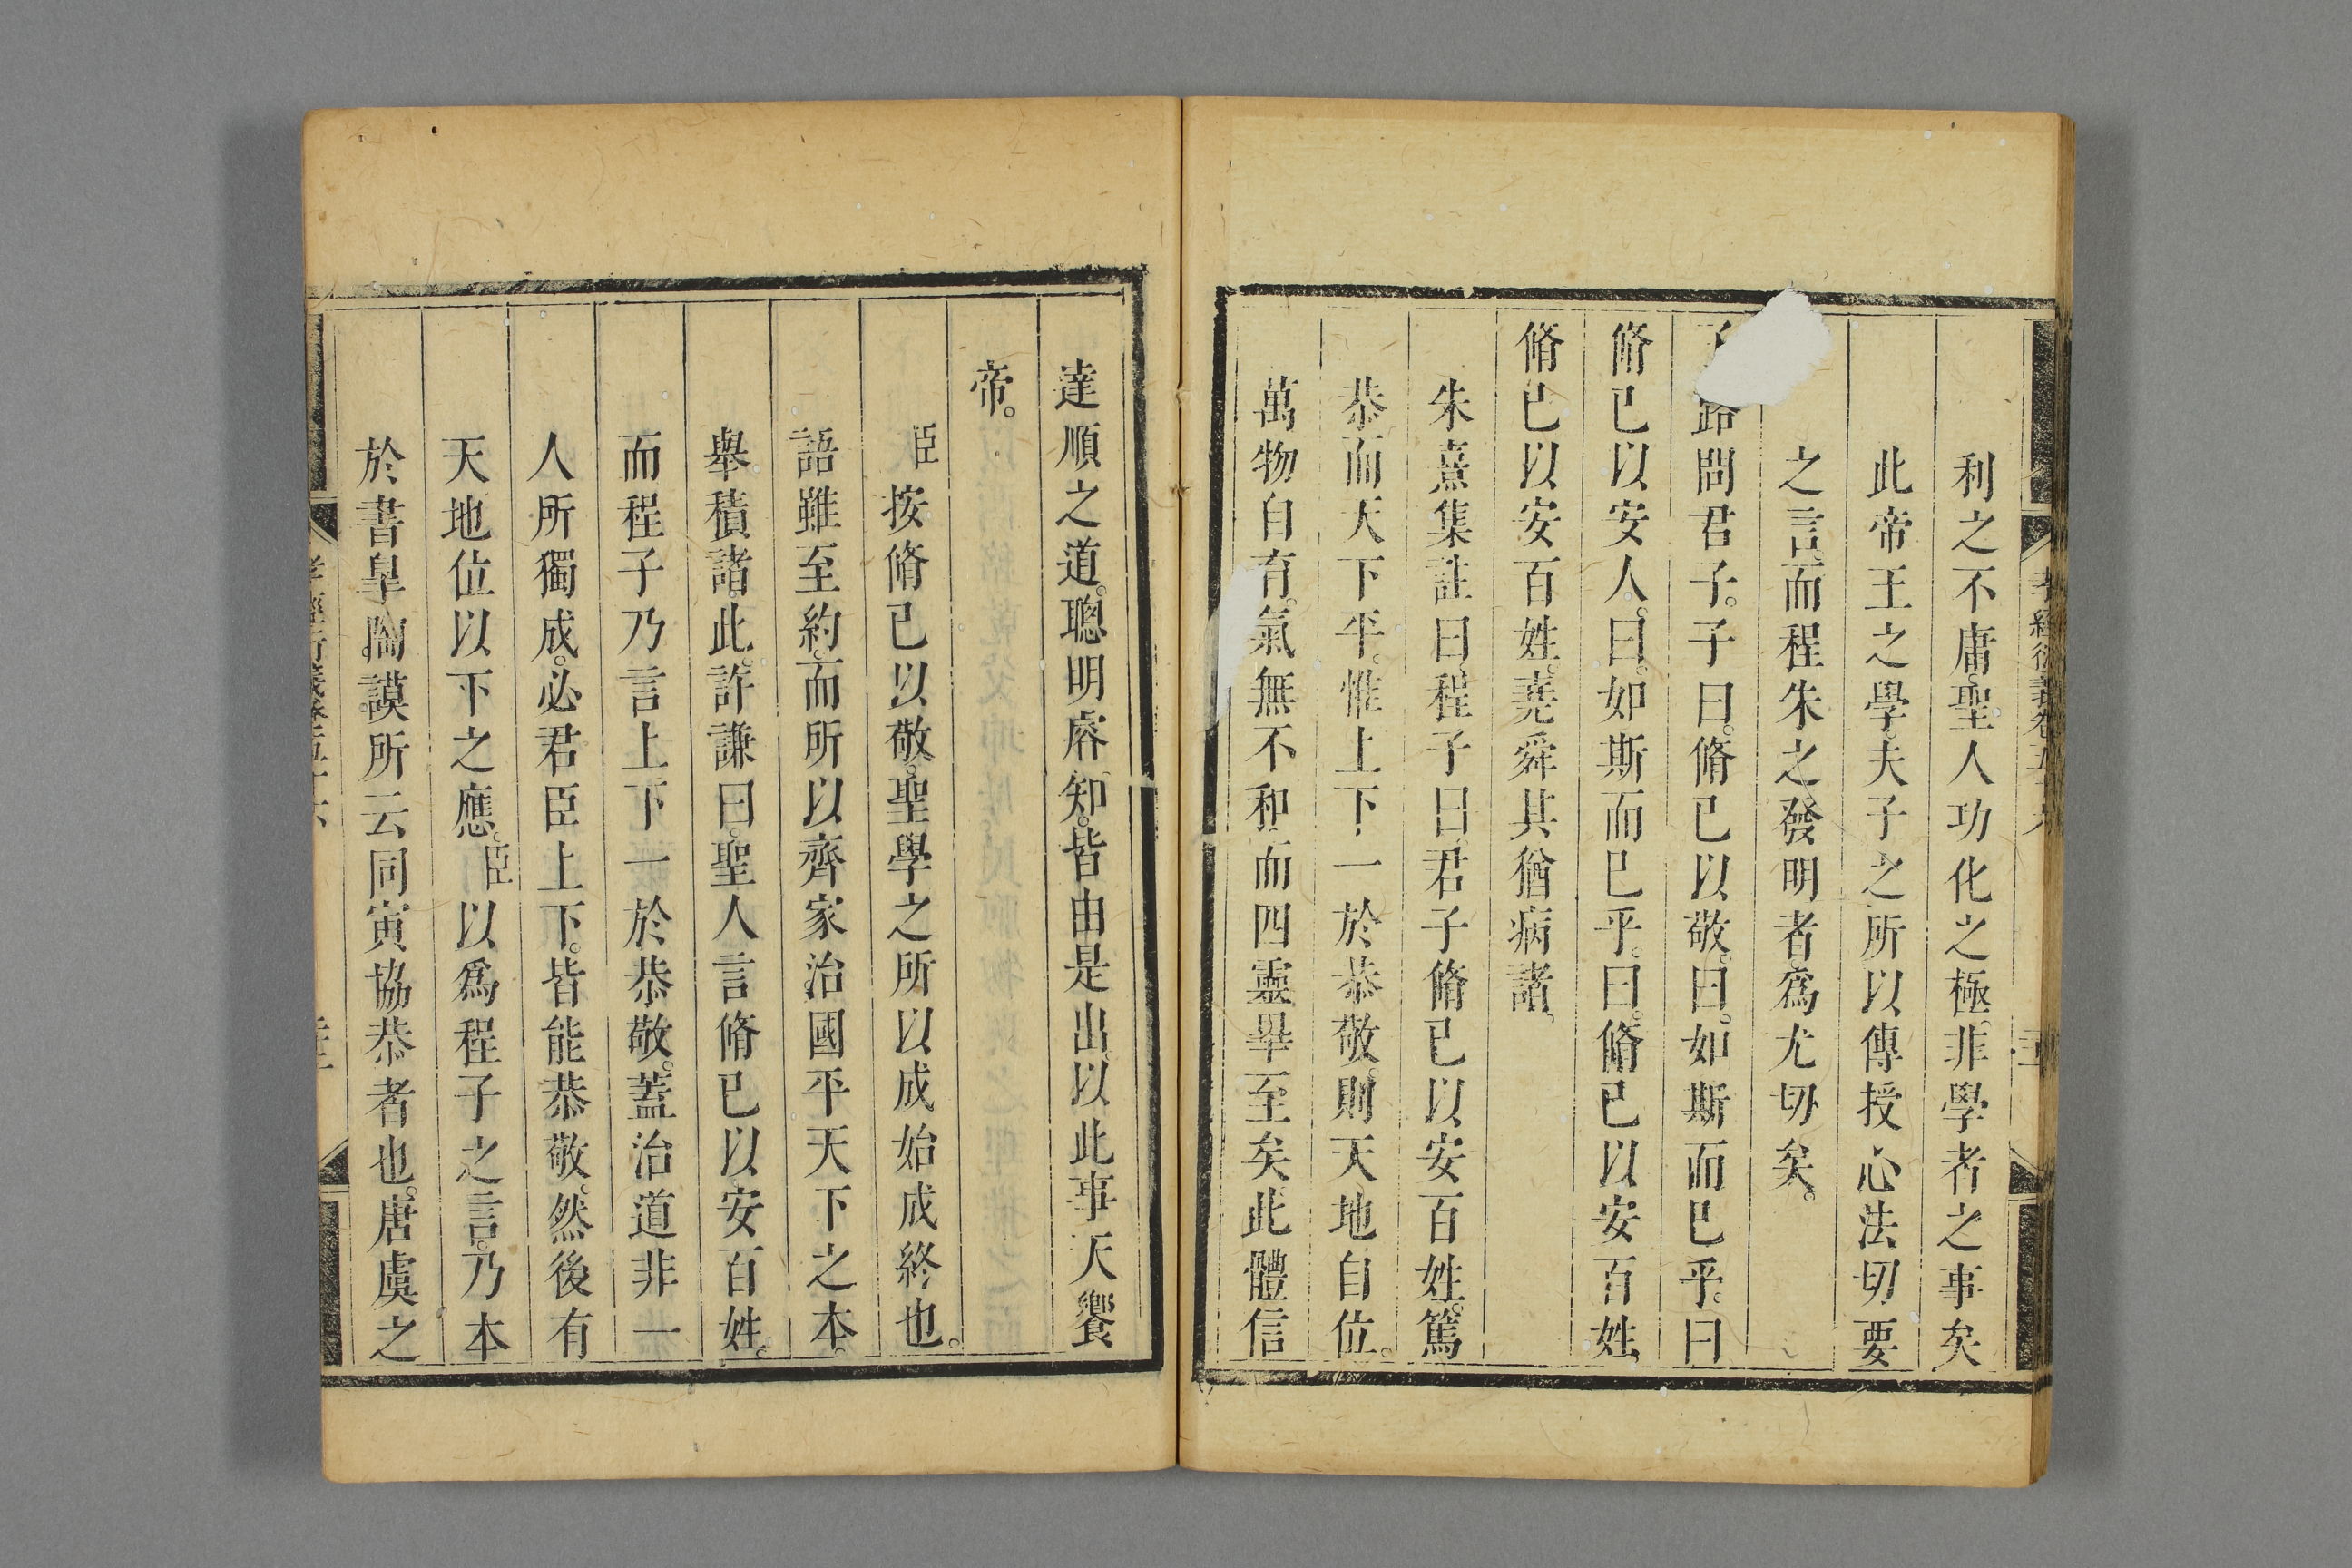 利之不庸。聖人功化之極。非學者之事矣
此帝王之學。夫子之所以傳授心法切要
之言。而程朱之發明者。爲尤切矣。
路問君子。子曰。脩已以敬。曰。如斯而已乎。曰
脩已以安人。曰。如斯而已乎。曰。脩已以安百姓。
脩已以安百姓。堯舜其猶病諸。
朱熹集註曰。程子曰。君子脩已以安百姓。篤
恭而天下平。惟上下一於恭敬。則天地自位。
萬物自育。氣無不和。而四靈畢至矣。此體信
達順之道。聰明睿知。皆由是出。以此事天饗
帝。
臣按脩已以敬。聖學之所以成始成終也。
語雖至約。而所以齊家治國平天下之本。
舉積諸此。許謙曰。聖人言脩已以安百姓。
而程子乃言上下一於恭敬。蓋治道非一
人所獨成。必君臣上下。皆能恭敬。然後有
天地位以下之應。臣以爲程子之言。乃本
於書皐陶謨所云同寅協恭者也。唐虞之